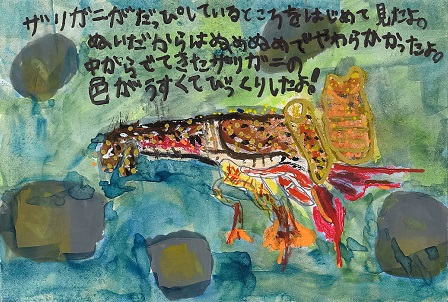 ザリガニがだっぴしているところをはじめて見たよ。
ぬいだからはぬめぬめでやわらかかったよ。
中からでてきたザリガニの
色がうすくてびっくりしたよ!